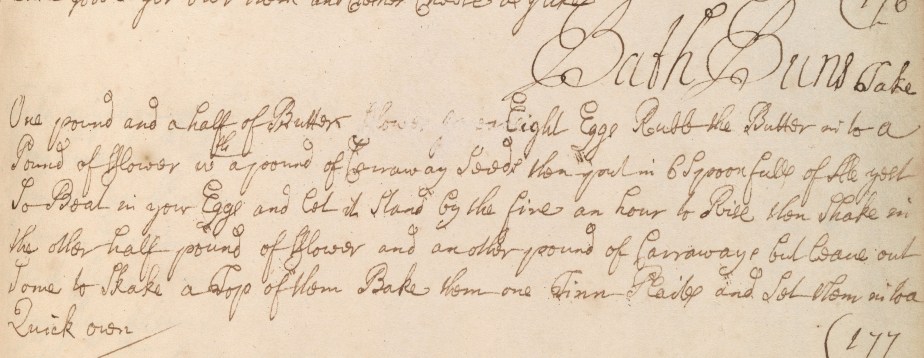 (176
Bath Buns Take
One pound and a half of Butter Eight Eggs Rubb the Butter in to a
Pound of fflower wth a pound of Carraway Seeds then put in 6 Spoonfulls of Ale yest
So Beat in your Eggs and let it Stand by the fire an hour to Rise then Shake in
the other half pound of fflower and another pound of Carraways but leave out
Some to Shake a Top of them Bake them one Tinn Plaites and Set them in to a
Quick oven
(177